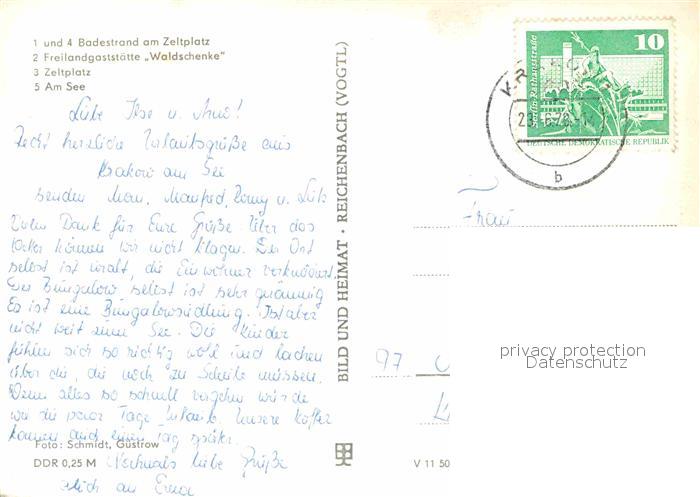 1 und 4 Badestrand am Zeltplatz
2 Freilandgaststätte „Waldschenke"
3 Zeltplatz
5 Am See
Liebe Ilse u. !
Recht herzliche Urlaubsgrüße aus
Krakow am See
senden Man., Manfred, Romy u.
Vielen Dank für Eure Grüße. Über das
Wetter können wir nicht klagen. Der Ort
selbst ist uralt, die Einwohner verknöchert.
Der Bungalow selbst ist sehr geräumig
Es ist eine Bungalowsiedlung. Ist aber
nicht weit zum See. Die Kinder
fühlen sich so richtig wohl und lachen
über die, die noch zu Schule müssen.
Wenn alles so schnell vergehen würde
wie die paar Tage Urlaub. Unsere Koffer
kamen auch einen Tag später.
Foto: Schmidt, Güstrow
DDR 0,25 M
Nochmals liebe Grüße
auch an
BILD UND HEIMAT · REICHENBACH (VOGTL)
V 11 50
10
Berlin, Rathausstraße
DEUTSCHE DEMOKRATISCHE REPUBLIK
b
Frau
97
privacy protection
Datenschutz